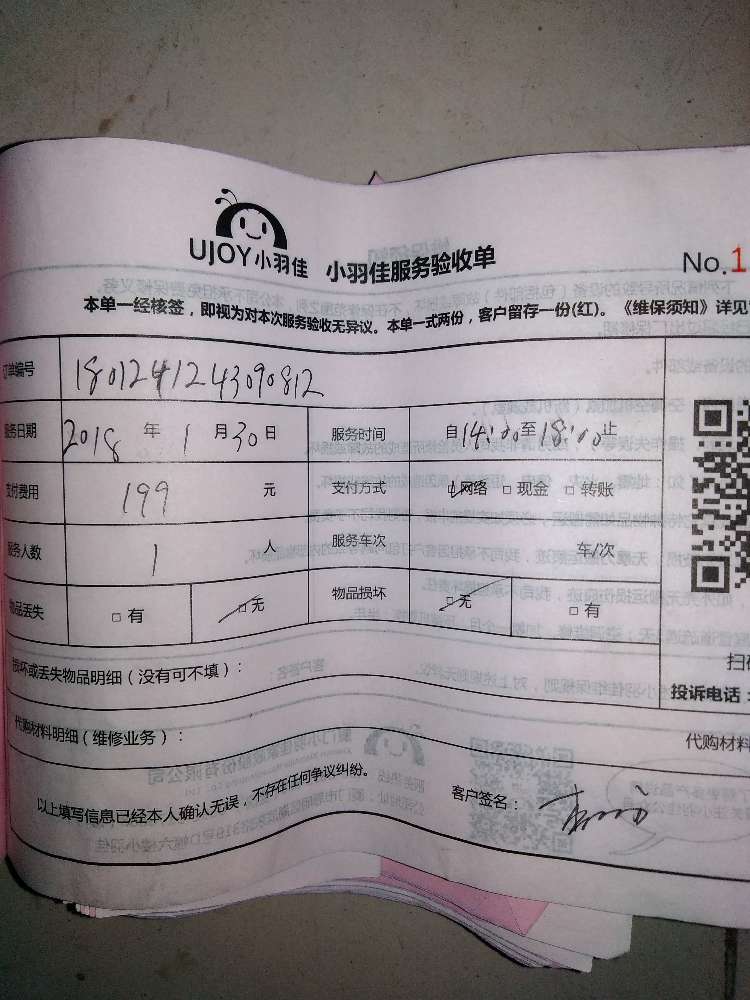 UJOY小羽佳 小羽佳服务验收单 No.1
本单一经核签，即视为对本次服务验收无异议。本单一式两份，客户留存一份(红)。《维保须知》详见
订单编号 1801241243090812
服务日期 2018 年 1 月 30 日 服务时间 自14:00至18:00止
支付费用 199 元 支付方式 网络 □现金 □转账
服务人数 1 人 服务车次 车/次
物品丢失 □有 □无 物品损坏 □无 □有
损坏或丢失物品明细（没有可不填）：
扫
投诉电话：
代购材料明细（维修业务）： 代购材料
以上填写信息已经本人确认无误，不存在任何争议纠纷。 客户签名：